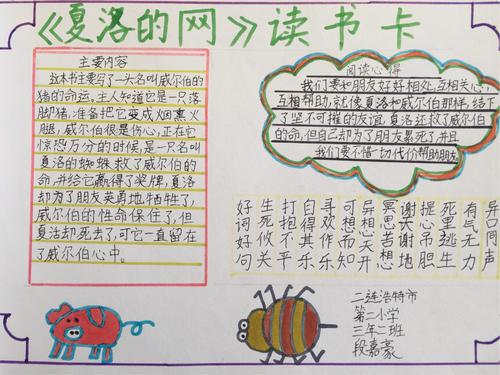 《夏洛的网》读书卡
主要内容
这本书主要写了一头名叫威尔伯的
猪的命运,主人知道它是一只落
脚猪,准备把它变成烟熏火
腿,威尔伯很是伤心,正在它
惊恐万分的时候,是一只名叫
夏洛的蜘蛛救了威尔伯的
命,并给它赢得了奖牌,夏洛
却为了朋友英勇地牺牲了,
威尔伯的性命保住了,但
夏洛却死去了,可它一直留在
了威尔伯心中。
阅读心得
我们要和朋友好好相处,互相关心,
互相帮助,就像夏洛和威尔伯那样,结下
了坚不可摧的友谊,夏洛还救了威尔伯
的命,但自己却为了朋友累死了,并且
我们要不惜一切代价帮助朋友
好词好句
生死攸关
打抱不平
自得其乐
寻欢作乐
可想而知
异想天开
冥思苦想
谢天谢地
提心吊胆
死里逃生
有气无力
异口同声
二连浩特市
第二小学
三年二班
段嘉豪